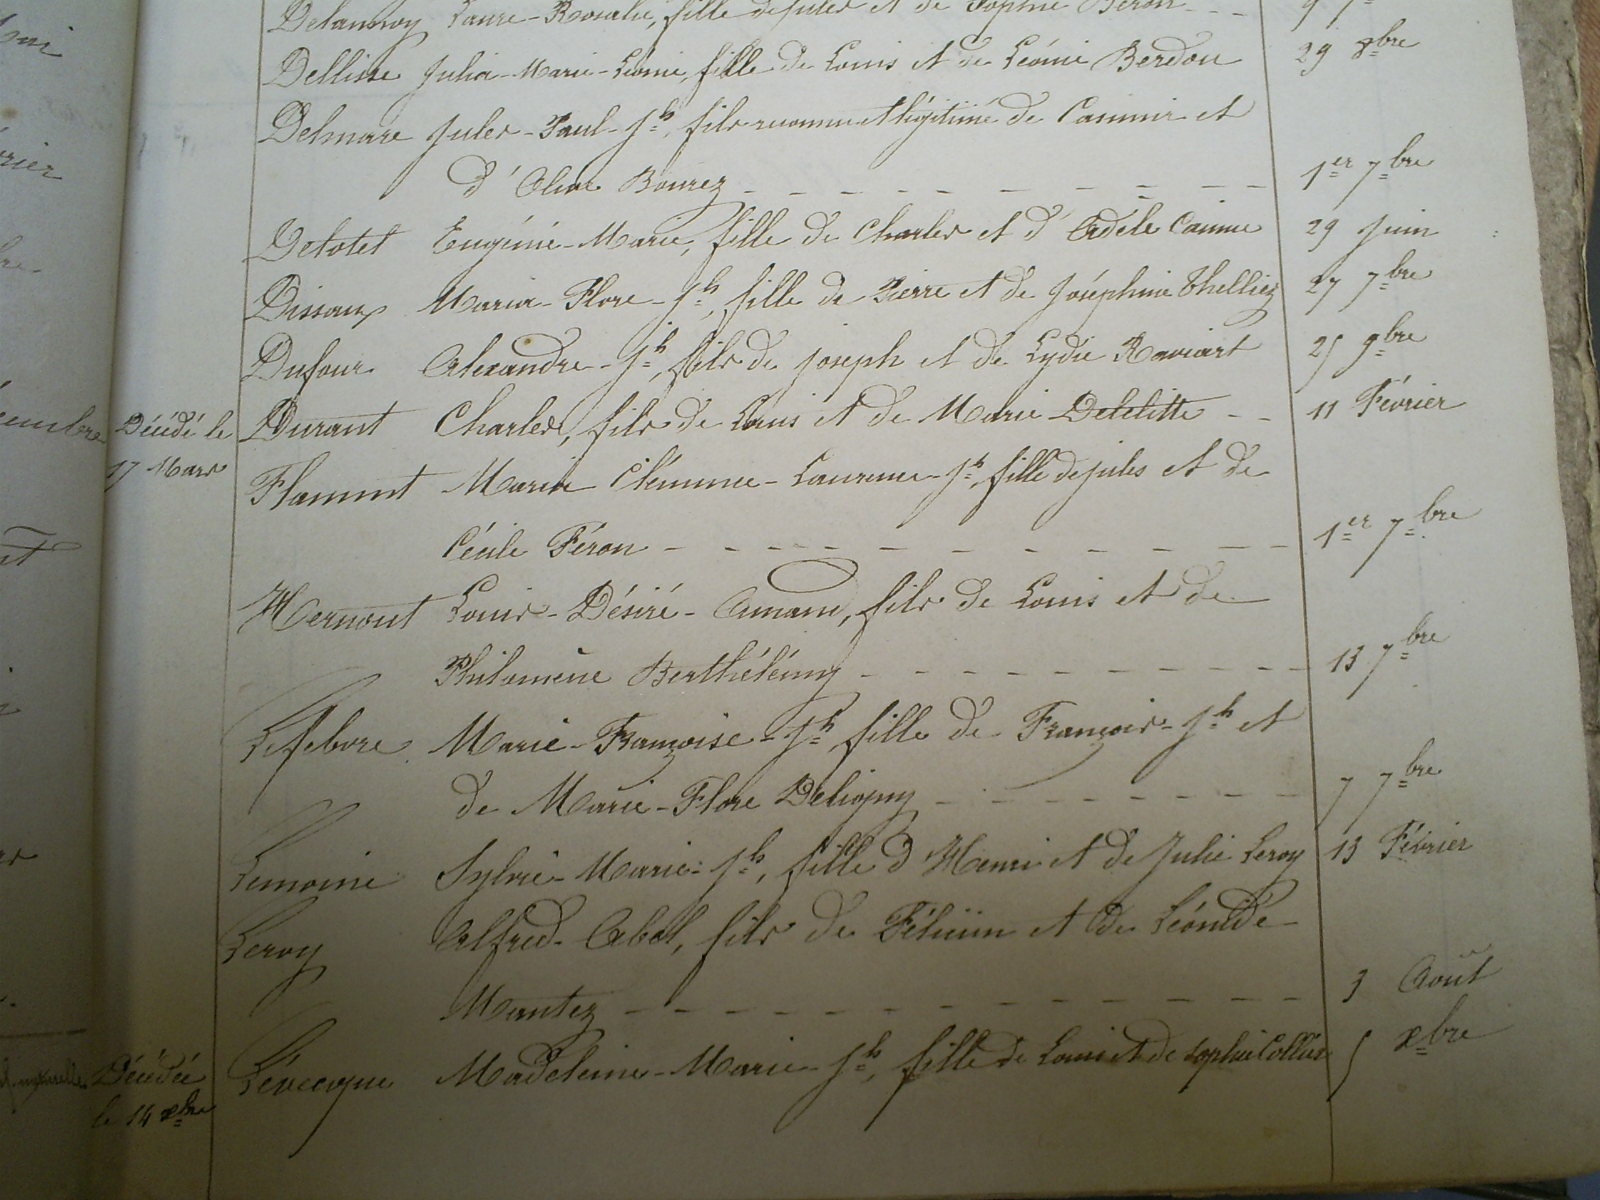 Delannoy Laure-Rosalie, fille de Jules et de Sophie
Dellisse Julia-Marie-Léonie, fille de Louis et de Léonie Berdou 29 xbre
Delmare Jules-Paul-Jh, fils reconnu et légitimé de Casimir et
d'Aline Bourez 1er 7bre
Detotel Eugénie-Marie, fille de Charles et d'Adèle 29 Juin
Dissaux Maria-Flore-Jh, fille de Pierre et de Joséphine Thelliez 27 7bre
Dufour Alexandre-Jh, fils de Joseph et de Lydie Raviart 25 9bre
Décédé le Durant Charles, fils de Louis et de Marie Delelitte 11 Février
17 Mars
Flament Maria Clémence-Laurence-Jh, fille de Jules et de
Cécile Féron 1er 7bre
Hernout Louis-Désiré-Amand, fils de Louis et de
Philomène Berthélémy 13 7bre
Lefebvre Marie-Françoise-Jh, fille de François-Jh et
de Marie-Flore Deligny 7 7bre
Lemoine Sylvie-Marie-Jh, fille d'Henri et de Julie Leroy 13 Février
Leroy Alfred-Abel, fils de Félicien et de Léonide
Mantez 3 Août
Décédée Lévecque Madeleine-Marie-Jh, fille de Louis et de Sophie 5 xbre
le 14 xbre